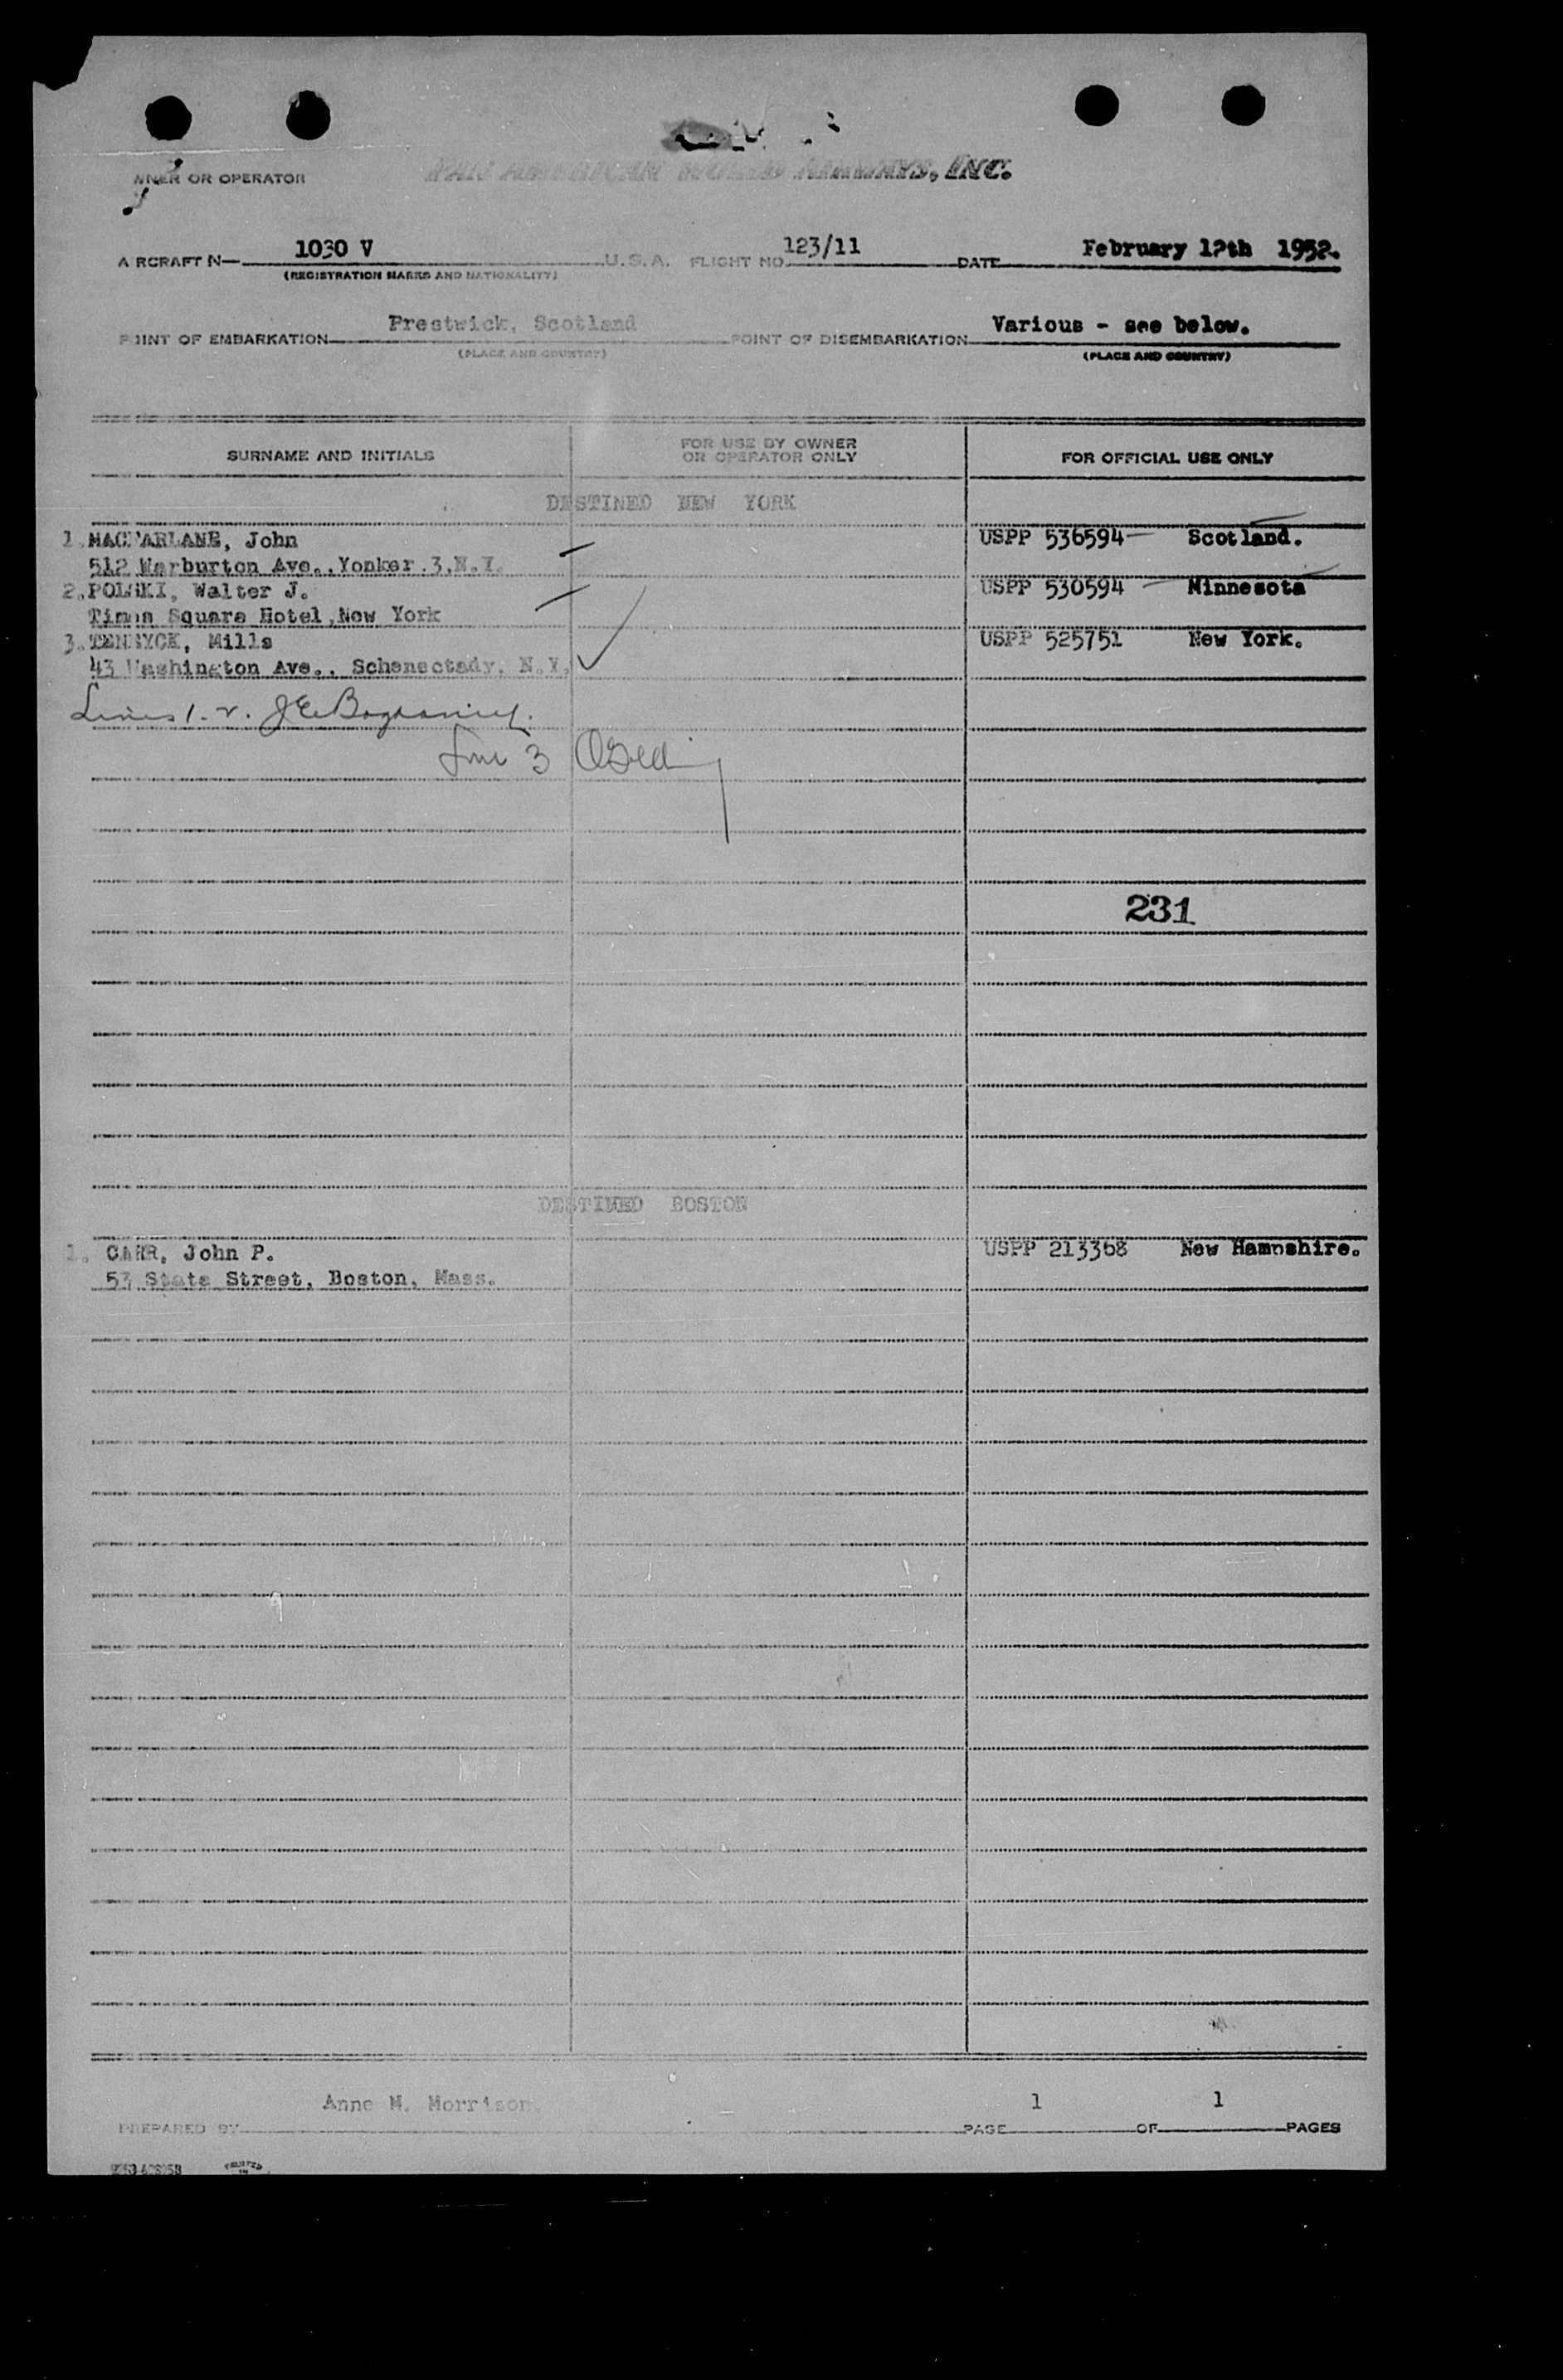 OWNER OR OPERATOR PAN AMERICAN WORLD AIRWAYS, INC.
AIRCRAFT N— 1030 V U.S.A. FLIGHT NO. 123/11 DATE February 12th 1952.
(REGISTRATION MARKS AND NATIONALITY)
POINT OF EMBARKATION Prestwick, Scotland POINT OF DISEMBARKATION Various - see below.
(PLACE AND COUNTRY) (PLACE AND COUNTRY)
SURNAME AND INITIALS FOR USE BY OWNER OR OPERATOR ONLY FOR OFFICIAL USE ONLY
DESTINED NEW YORK
1. MACFARLANE, John USPP 536594 Scotland.
512 Warburton Ave., Yonker 3, N.Y.
2. POLSKI, Walter J. USPP 530594 Minnesota
Times Square Hotel, New York
3. TENEYCK, Mills USPP 525751 New York.
43 Washington Ave., Schenectady, N.Y.
Lines 1. 2.
Line 3
231
DESTINED BOSTON
1. CARR, John P. USPP 213368 New Hampshire.
53 State Street, Boston, Mass.
Anne M. Morrison.
PREPARED BY PAGE 1 OF 1 PAGES
PRINTED IN